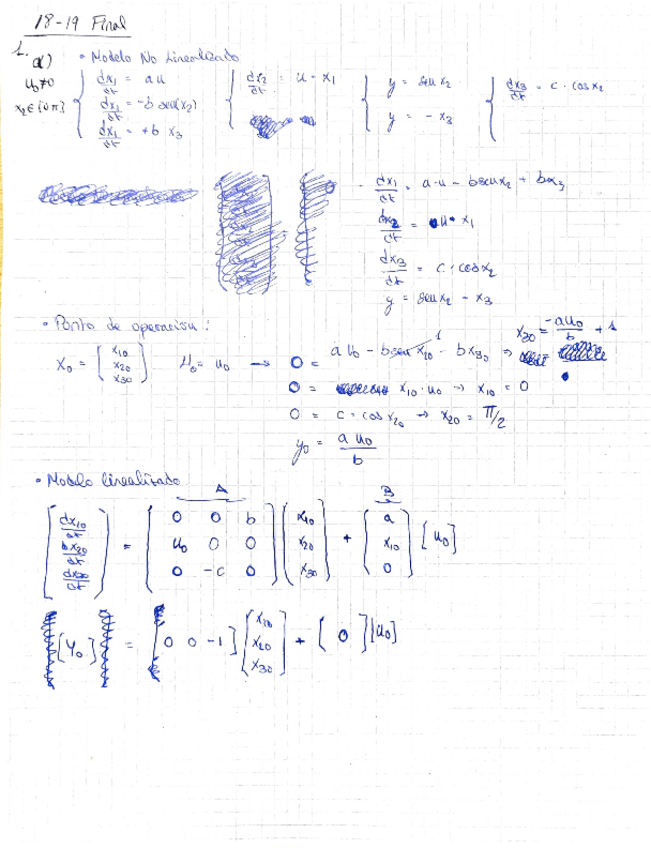 18-19 Final
1. a) • Modelo No Linealizado
u₀≠0
x₂∈{0 π}
dx₁/dt = au
dx₁/dt = -b seu(x₂)
dx₁/dt = +b x₃
dx₂/dt = u · x₁
y = seu x₂
y = - x₃
dx₃/dt = c · cos x₂
dx₁/dt = a·u - b seu x₂ + bx₃
dx₂/dt = u · x₁
dx₃/dt = c · cos x₂
y = seu x₂ - x₃
• Ponto de operación :
X₀ = [x₁₀ x₂₀ x₃₀] U₀ = u₀ → 0 = a u₀ - b seu x₂₀ 1 - b x₃₀ ⇒ x₃₀ = -au₀/b + 1
0 = x₁₀ · u₀ → x₁₀ = 0
0 = c · cos x₂₀ → x₂₀ = π/2
y₀ = a u₀/b
• Modelo linealizado
A B
[dx₁₀/dt] = [0 0 b] [x₁₀] + [a] [u₀]
[dx₂₀/dt] [u₀ 0 0] [x₂₀] [x₁₀]
[dx₃₀/dt] [0 -c 0] [x₃₀] [0]
[Y₀] = [0 0 -1] [x₁₀ x₂₀ x₃₀] + [0] [u₀]